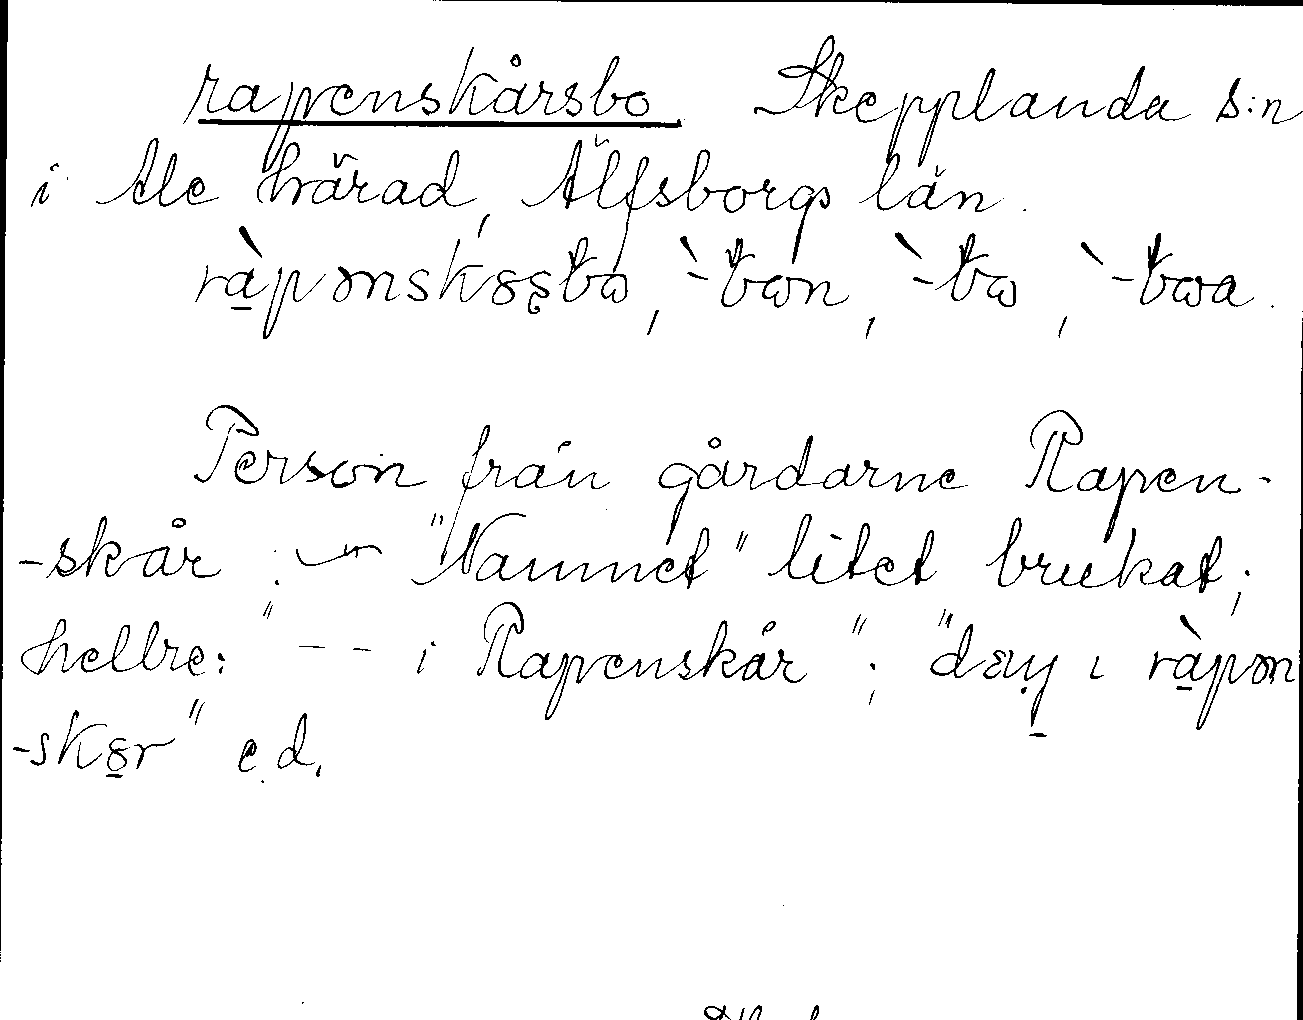 rapenskårsbo Skepplanda s:n
i Ale härad, Älfsborgs län.
ràpənskɞʂbɷ, `-bɷn, `-bɷ, `-bɷa.
Person från gårdarne Rapen-
-skår. — "Namnet" litet brukat;
hellre: " - - i Rapenskår"; " i ràpən
-skɞr" e.d.